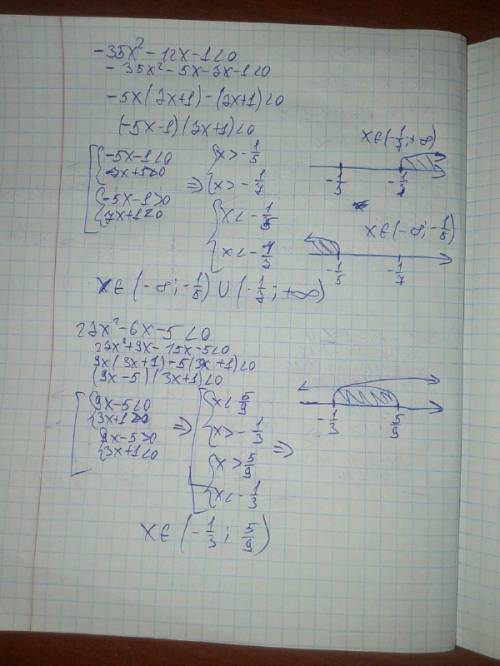 -35x²-12x-1<0
-35x²-5x-7x-1<0
-5x(7x+1)-(7x+1)<0
(-5x-1)(7x+1)<0
x∈(-1/7;+∞)
-5x-1<0
7x+1>0
-5x-1>0
7x+1<0
⇒
x>-1/5
x>-1/7
x<-1/5
x<-1/7
-1/5 -1/7
x∈(-∞;-1/5)
-1/5 -1/7
x∈(-∞;-1/5)∪(-1/7;+∞)
27x²-6x-5<0
27x²+9x-15x-5<0
9x(3x+1)-5(3x+1)<0
(9x-5)(3x+1)<0
9x-5<0
3x+1>0
9x-5>0
3x+1<0
⇒
x<5/9
x>-1/3
x>5/9
x<-1/3
⇒
-1/3 5/9
x∈(-1/3;5/9)